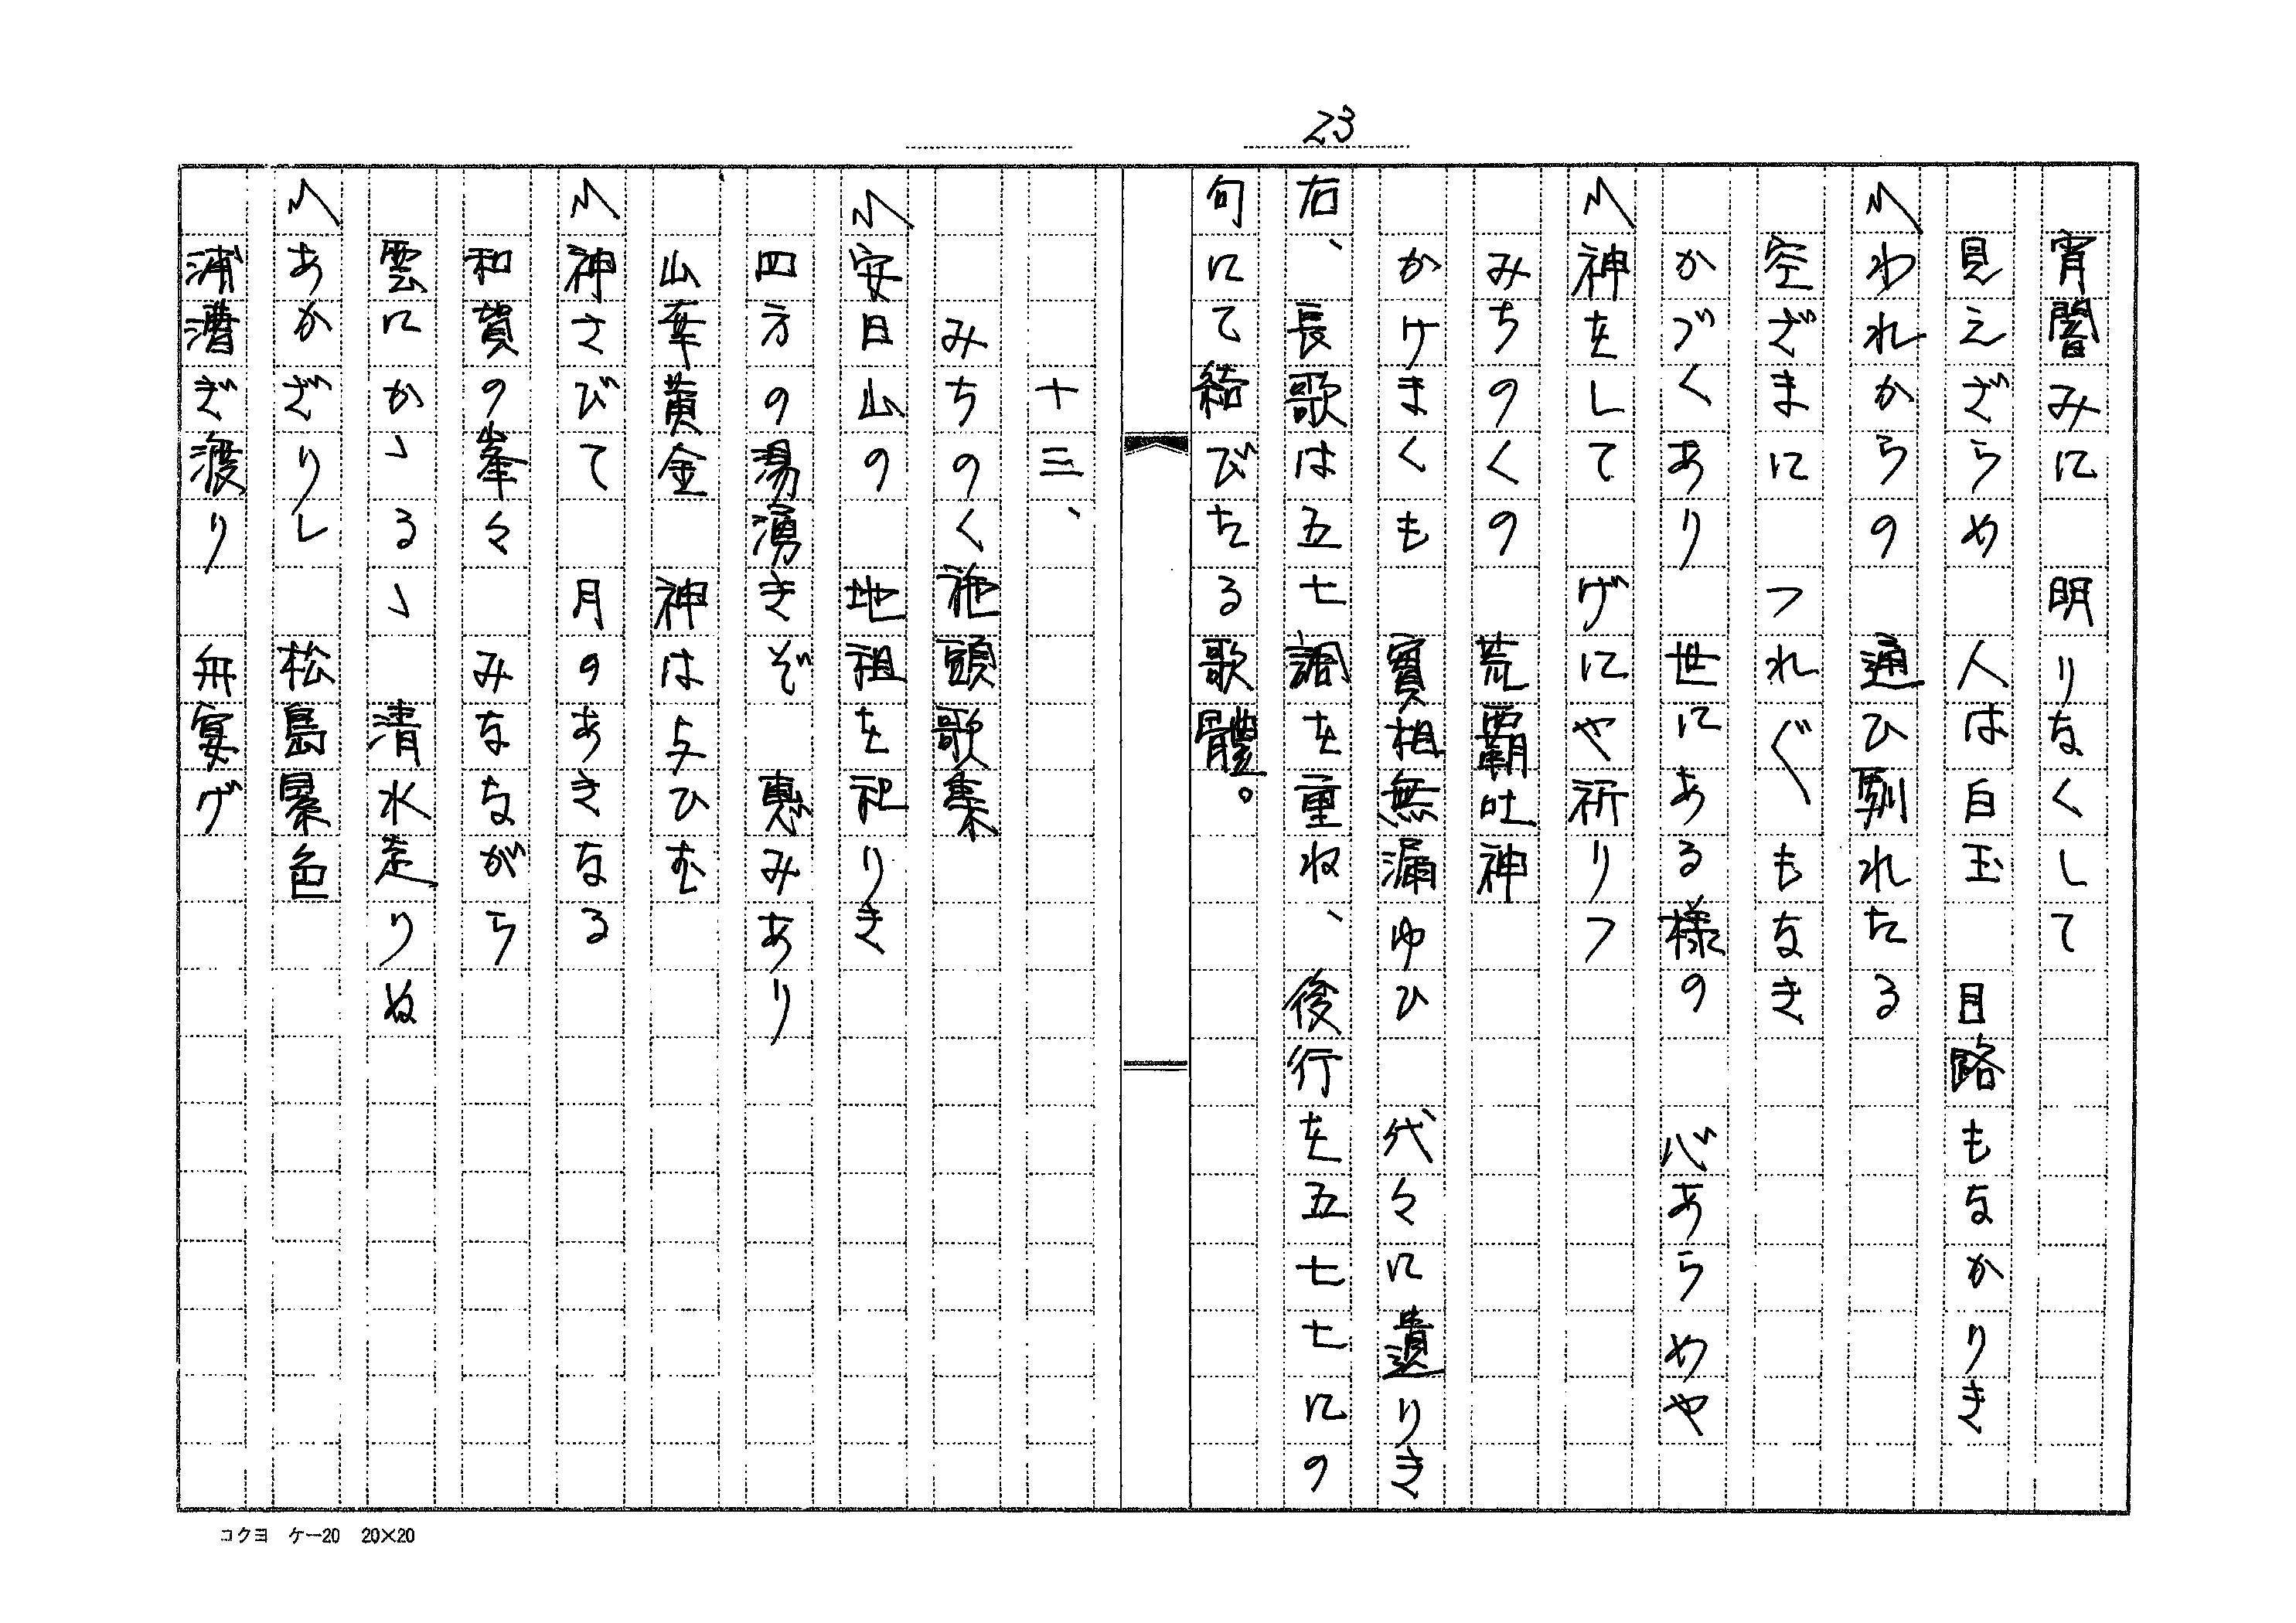 23
宵闇みに　明りなくして
見えざらめ　人は白玉　目路もなかりき
〽われからの　通ひ馴れたる
空ざまに　つれ〴〵もなき
かづくあり　世にある様の　心あらめや
〽神をして　げにや祈りつ
みちのくの　荒覇吐神
かけまくも　實相無漏ゆひ　代々に遺りき
右、長歌は五七調を重ね、後行を五七七にの
句にて結びたる歌體。
十三、
みちのく祂頭歌集
〽安日山の　地祖を祀りき
四方の湯湧きぞ　惠みあり
山峯黄金　神は与ひむ
〽神さびて　月のあきなる
和賀の峯々　みなながら
雲にかゝるゝ　清水走りぬ
〽あかざりし　松島景色
浦漕ぎ渡り　舟宴げ
コクヨ　ケー20　20×20